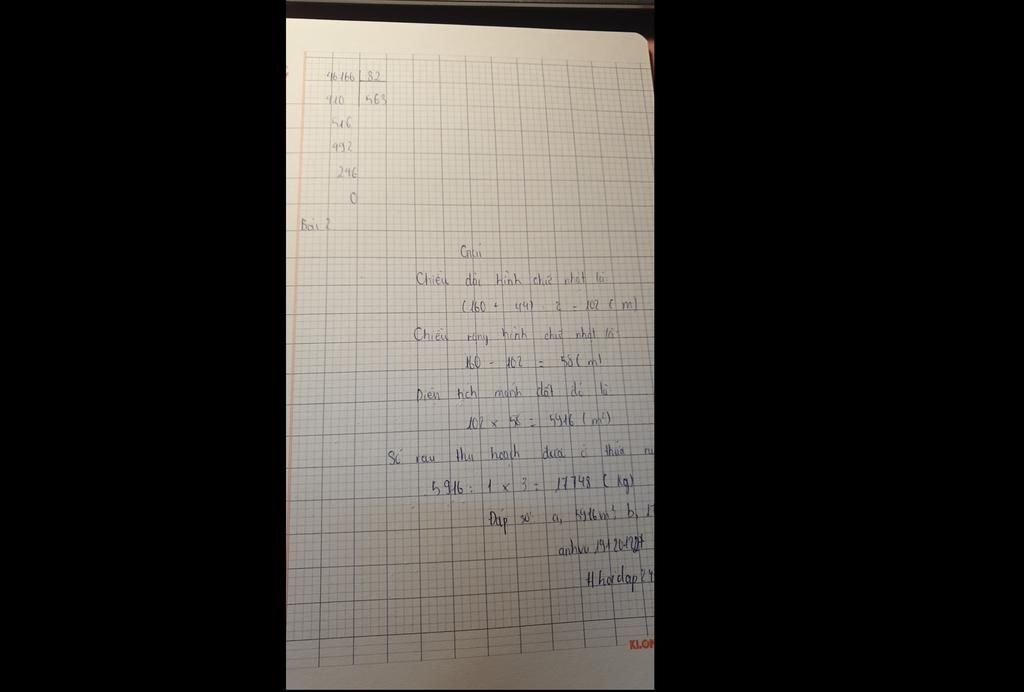 46166 | 82
410 | 563
516
492
246
0
Bài 2
Giải
Chiều dài hình chữ nhật là:
(160 + 44) : 2 = 102 (m)
Chiều rộng hình chữ nhật là:
160 - 102 = 58 (m)
Diện tích mảnh đất đó là
102 × 58 = 5916 (m²)
Số rau thu hoạch được ở thửa
5916 : 1 × 3 = 17748 (kg)
Đáp số: a, 5916m², b, 17
anhvu
#hoidap24
KLON